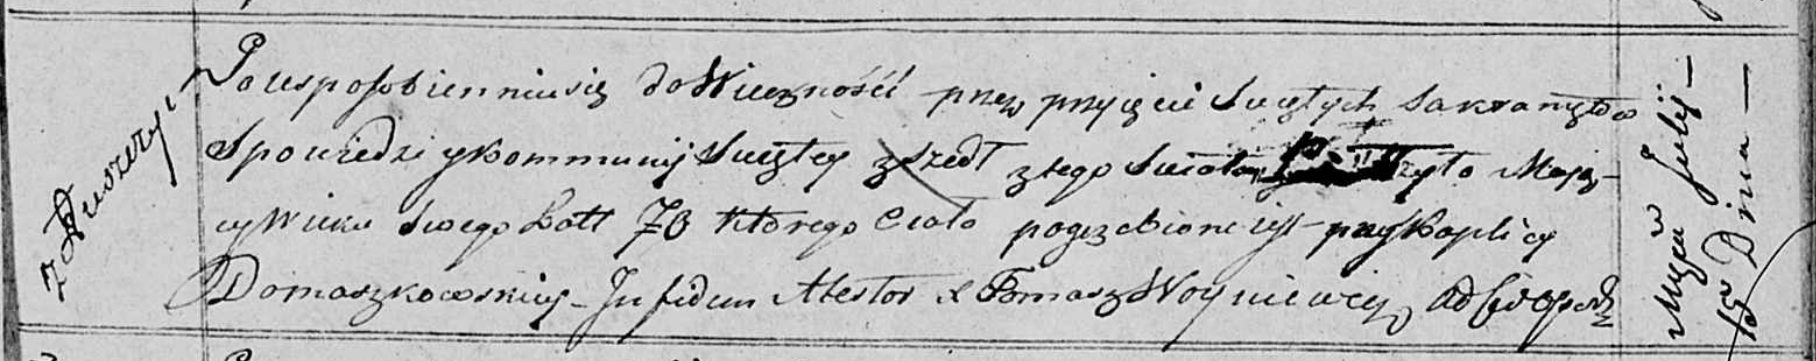 z Dworzyc
Po usposobienniu się do Wieczności przez przyięcie Swiętych Sakramętow
Spowiedzi y Kommunij Swiętey zszedł z tego Swiata Mają-
cy Wieku Swego Latt 70 którego Ciało pogrzebione jest przy Kaplicy
Domaszkowskiey - In fidem Attestor X Tomasz Woyniewicz
Mca Julij -
Dnia -